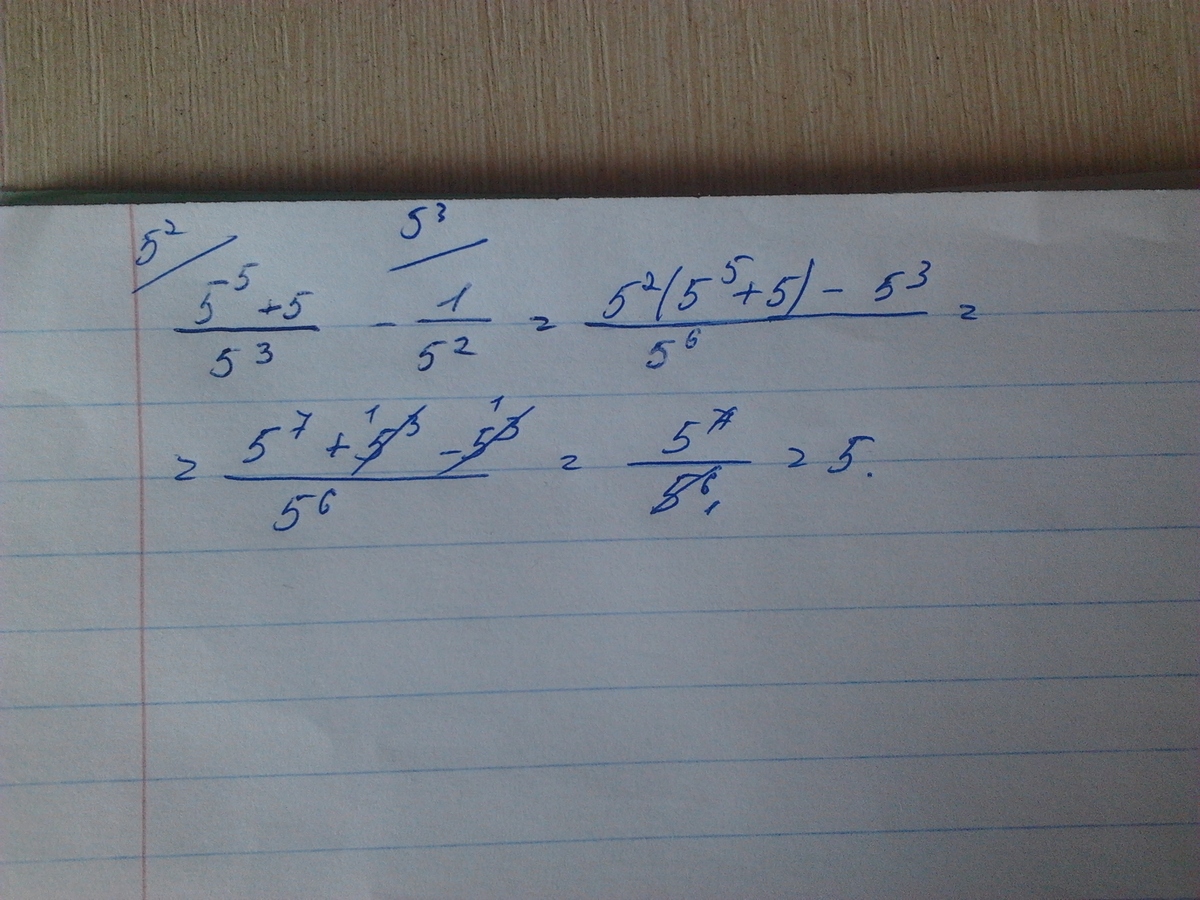 5² / (5⁵+5)/5³ - 5³ / 1/5² = (5²(5⁵+5) - 5³)/5⁶ =
= (5⁷ + 5³ - 5³)/5⁶ = 5⁷/5⁶ = 5.